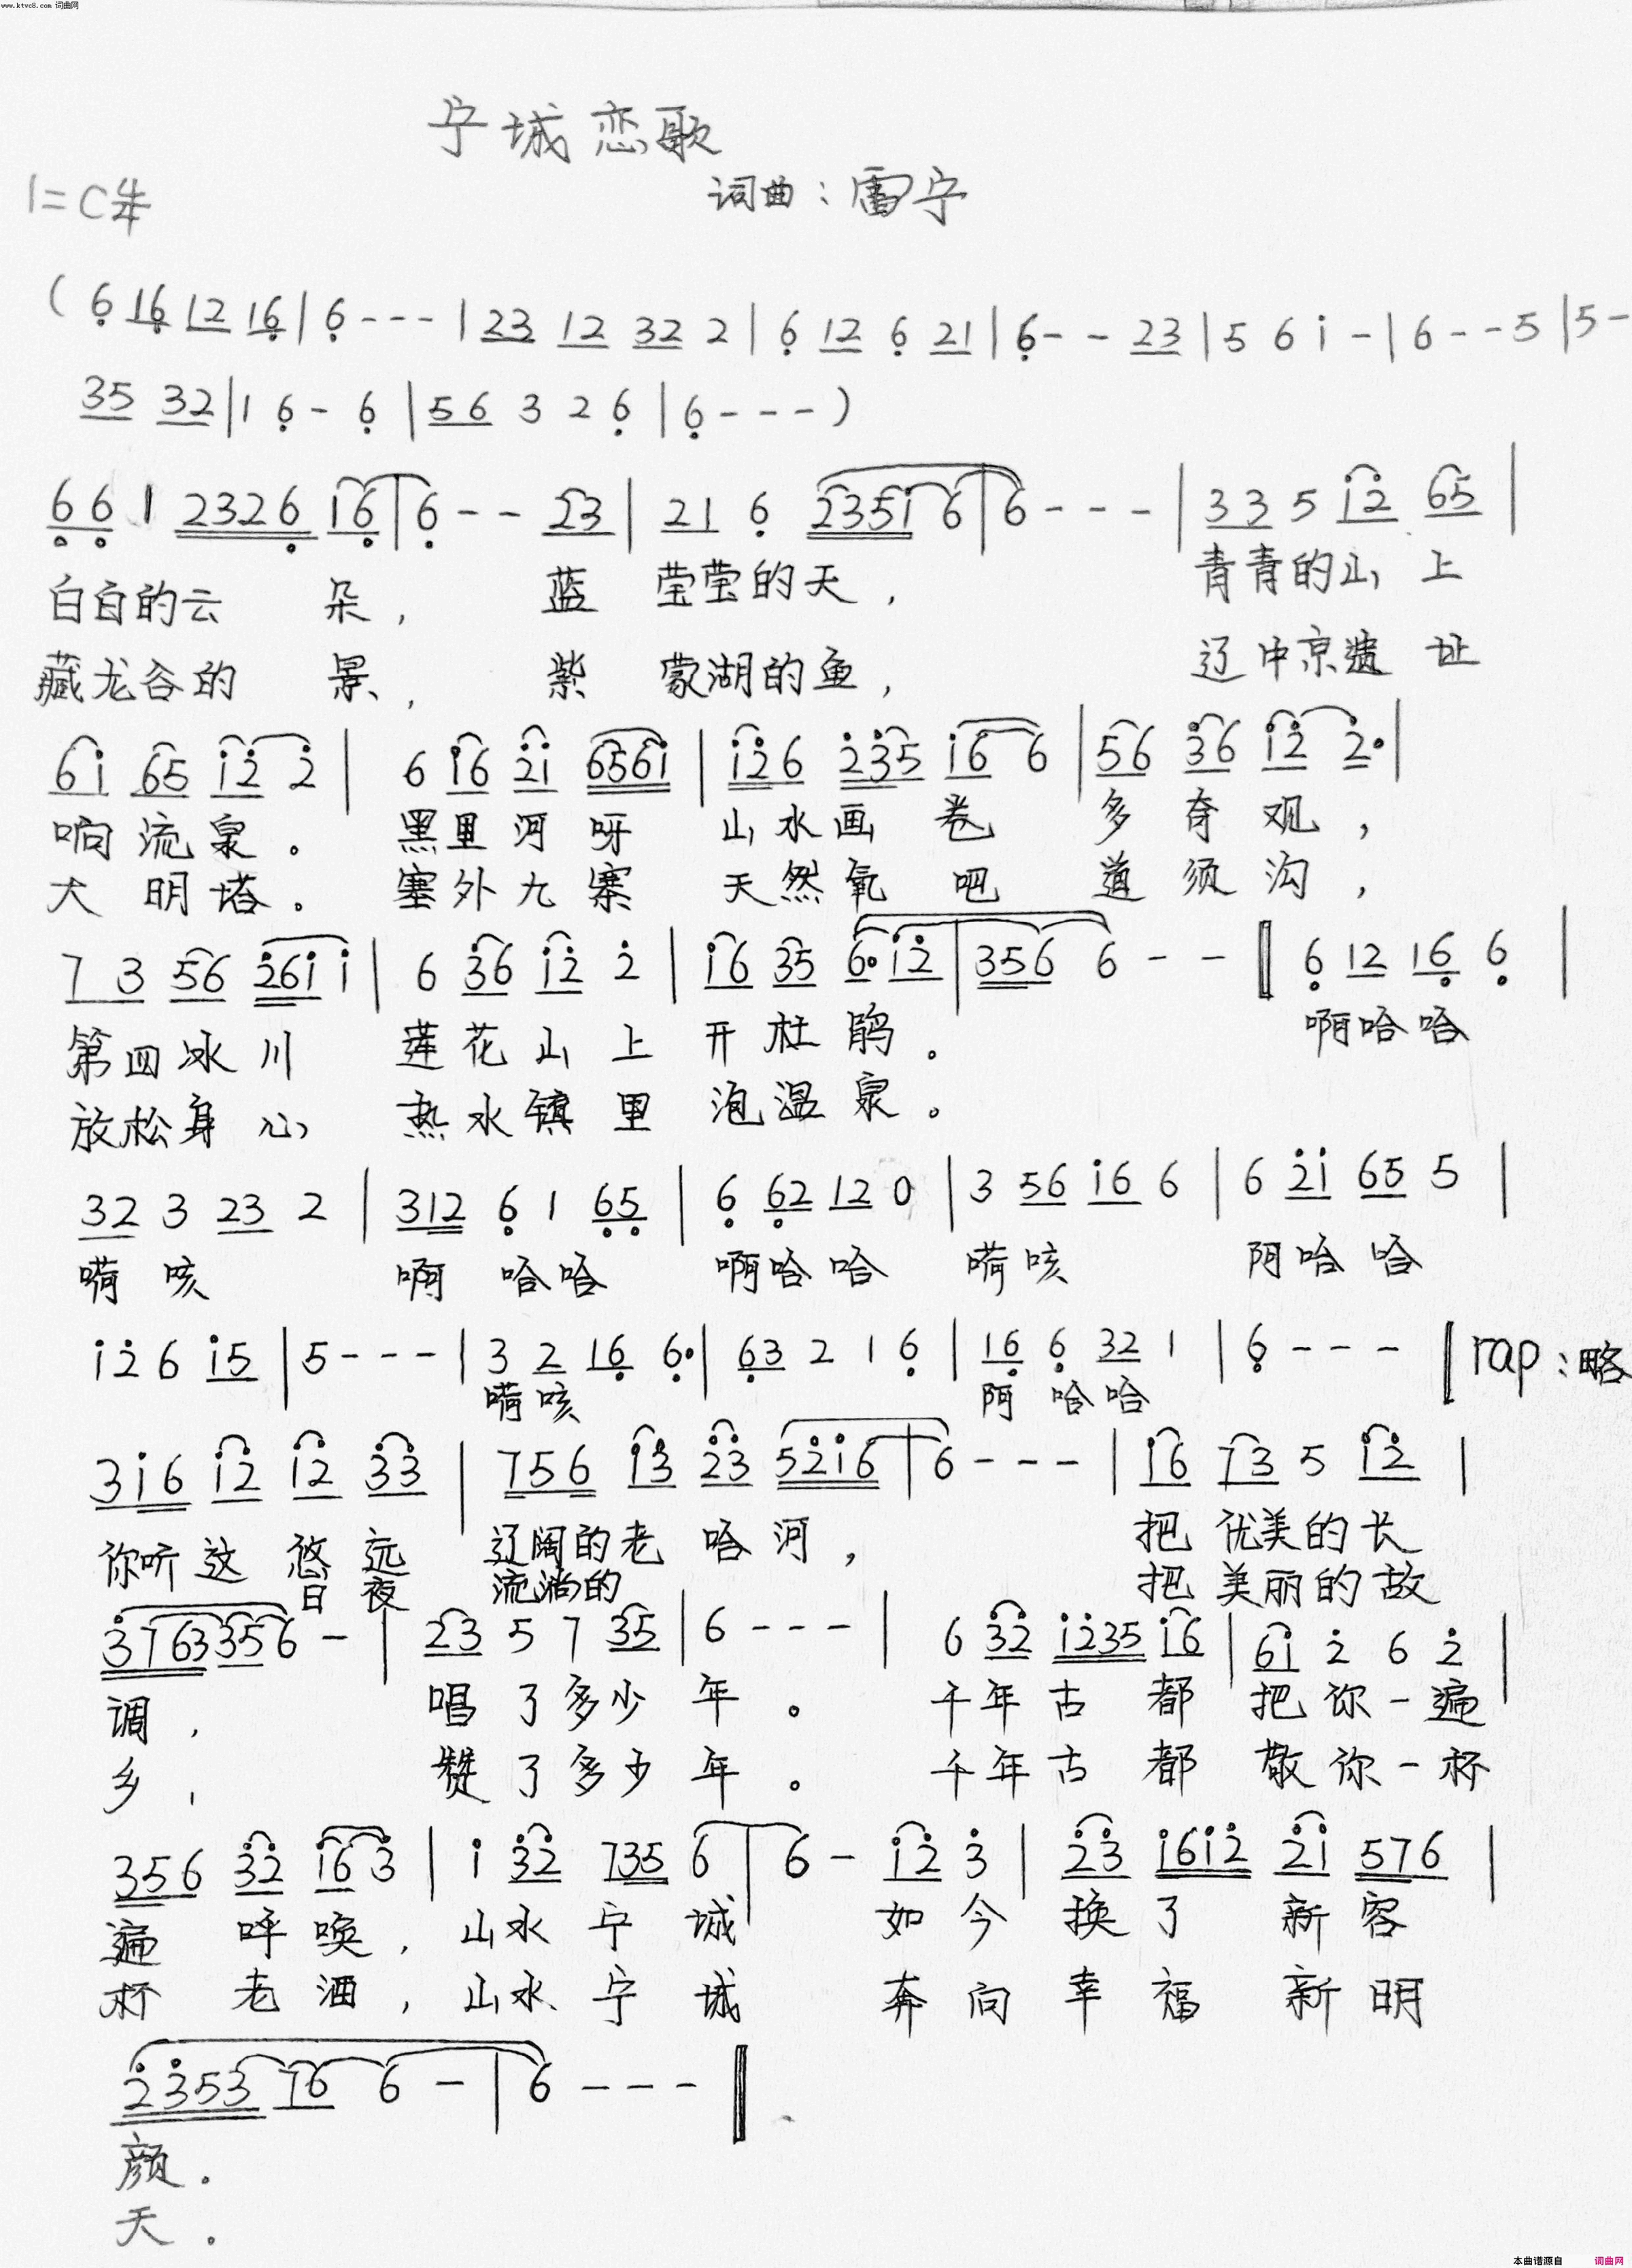 www.ktvc8.com 词曲网
宁城恋歌
词曲：雷宁
1=C 4/4
(6̣ 16̣ 12 16̣|6̣---|23 12 32 2|6̣ 12 6̣ 21|6̣-- 23|5 6 i -|6--5|5-
35 32|1 6̣ - 6̣|56 3 2 6̣|6̣---)
6̣6̣ 1 2326̣ 16̣|6̣-- 23|21 6̣ 235i 6|6---|33 5 i2̇ 65|
白白的云 朵， 蓝 莹莹的天， 青青的山 上
藏龙谷的 景， 紫 蒙湖的鱼， 辽中京遗 址
6i 65 i2̇ 2̇|6 i6 2̇i 656i|i2̇6 2̇3̇5 i6 6|56 3̇6 i2̇ 2̇·|
响流泉。 黑里河呀 山水画 卷 多奇观，
大明塔。 塞外九寨 天然氧 吧 道须沟，
7 3 56 2̇6i i|6 3̇6 i2̇ 2̇|i6 35 6·i2̇|356 6--‖6̣ 12 16̣ 6̣|
第四冰川 莲花山上 开杜鹃。 啊哈哈
放松身心 热水镇里 泡温泉。
32 3 23 2|312 6̣ 1 6̣5̣|6̣ 6̣2 12 0|3 56 i6 6|6 2̇i 65 5|
嗬咳 啊 哈哈 啊哈哈 嗬咳 阿哈哈
i2̇6 i5|5---|3 2 16̣ 6̣·|6̣3 2 1 6̣|16̣ 6̣ 32 1|6̣---‖rap：略
嗬咳 阿哈哈
3i6 i2̇ i2̇ 3̇3̇|756 i3̇ 2̇3̇ 52̇i6|6---|i6 73 5 i2̇|
你听这悠远 辽阔的老哈河， 把优美的长
日夜 流淌的 把美丽的故
3̇763356-|23 5 7 35|6---|6 3̇2̇ i2̇35 i6|6i 2̇ 6 2̇|
调， 唱了多少年。 千年古都 把你一遍
乡， 赞了多少年。 千年古都 敬你一杯
356 3̇2̇ i63̇|i 3̇2̇ 735 6|6- i2̇ 3̇|2̇3̇ i6i2̇ 2̇i 576|
遍 呼唤，山水宁城 如今 换了 新容
杯 老酒，山水宁城 奔向 幸福 新明
2̇3̇53 76 6-|6---‖
颜。
天。
本曲谱源自 词曲网